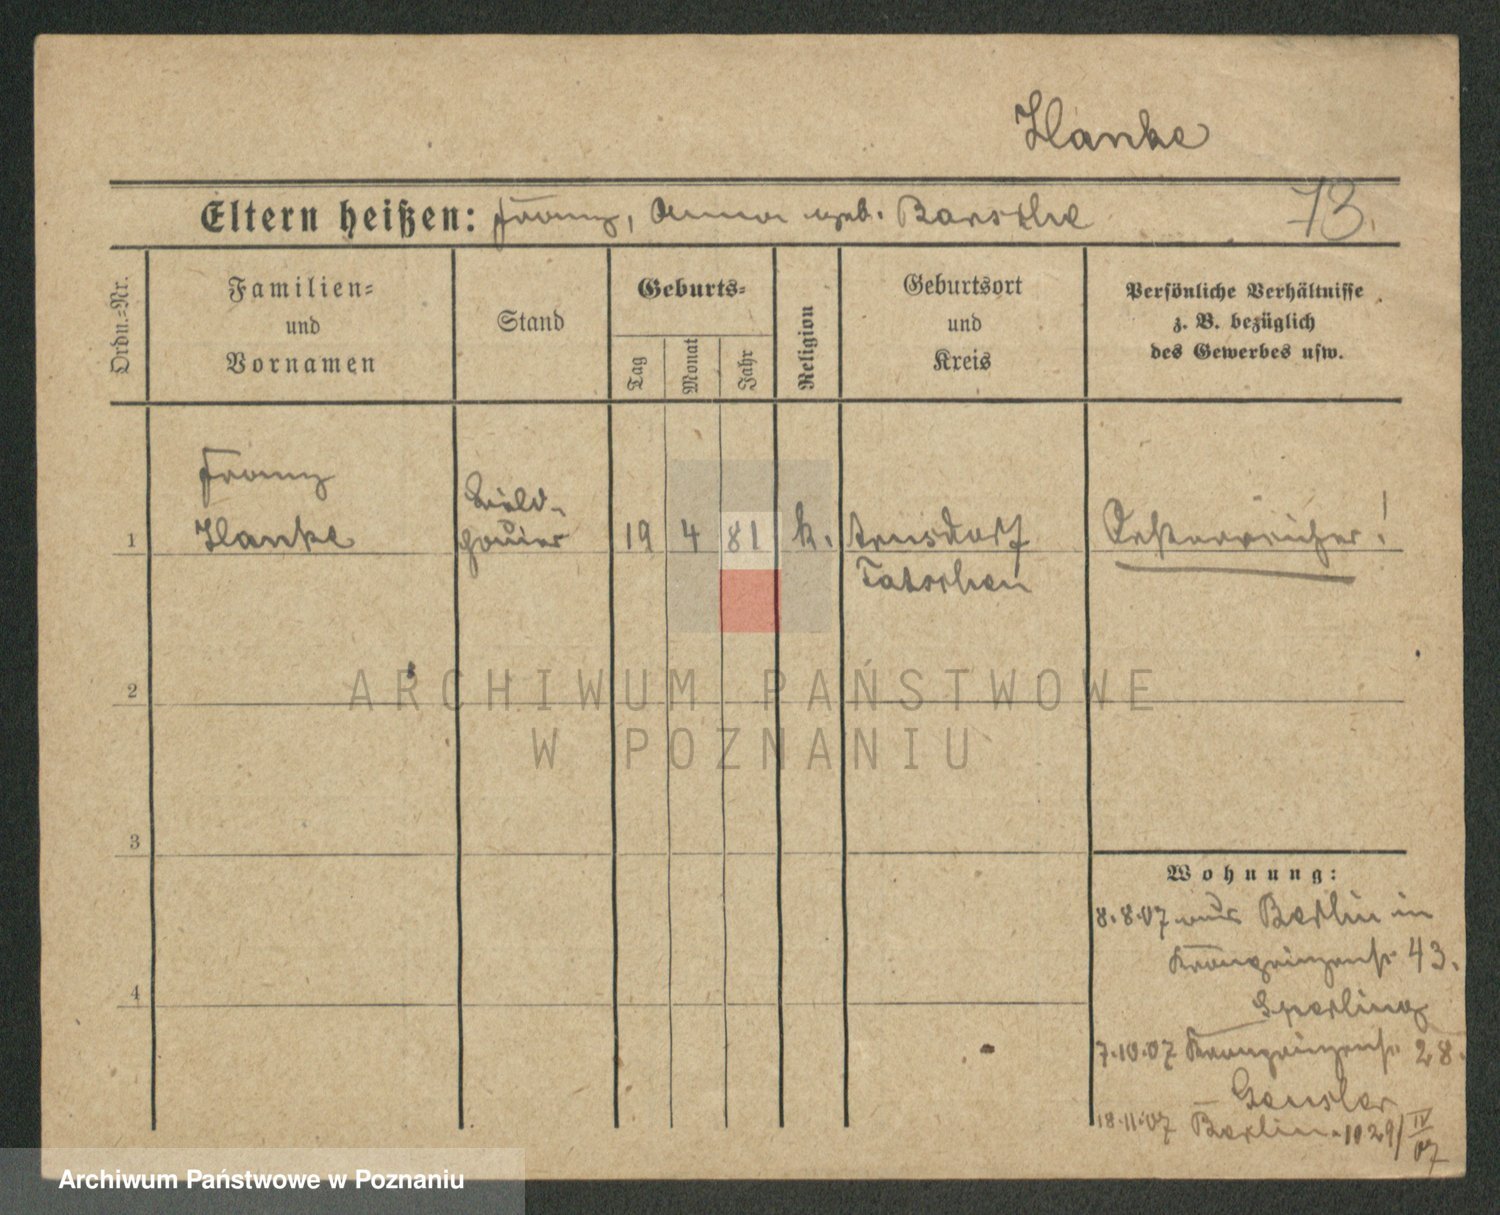 Hanke
Eltern heißen: Franz, Anna geb. Barsche
73.
Ordn.-Nr.
Familien-
und
Vornamen
Stand
Geburts-
Tag
Monat
Jahr
Religion
Geburtsort
und
Kreis
Persönliche Verhältnisse
z. B. bezüglich
des Gewerbes usw.
Franz
Bild-
1 Hanke hauer 19 4 81 k. Arnsdorf Oesterreicher!
Tetschen
2
ARCHIWUM PAŃSTWOWE
W POZNANIU
3
Wohnung:
8.8.07 aus Berlin in
Kronprinzenstr 43.
Sperling
4
7.10.07 Kronprinzenstr 28.
18.11.07 Berlin
Archiwum Państwowe w Poznaniu